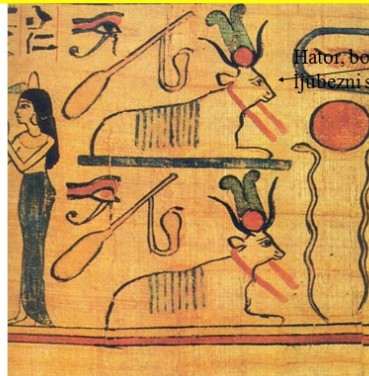 Hator, bo
ljubezni s